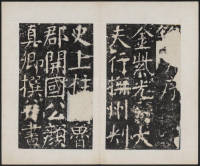 序
金紫光祿大
夫行撫州刺
史上柱 魯
郡開國公顏
真卿撰并書